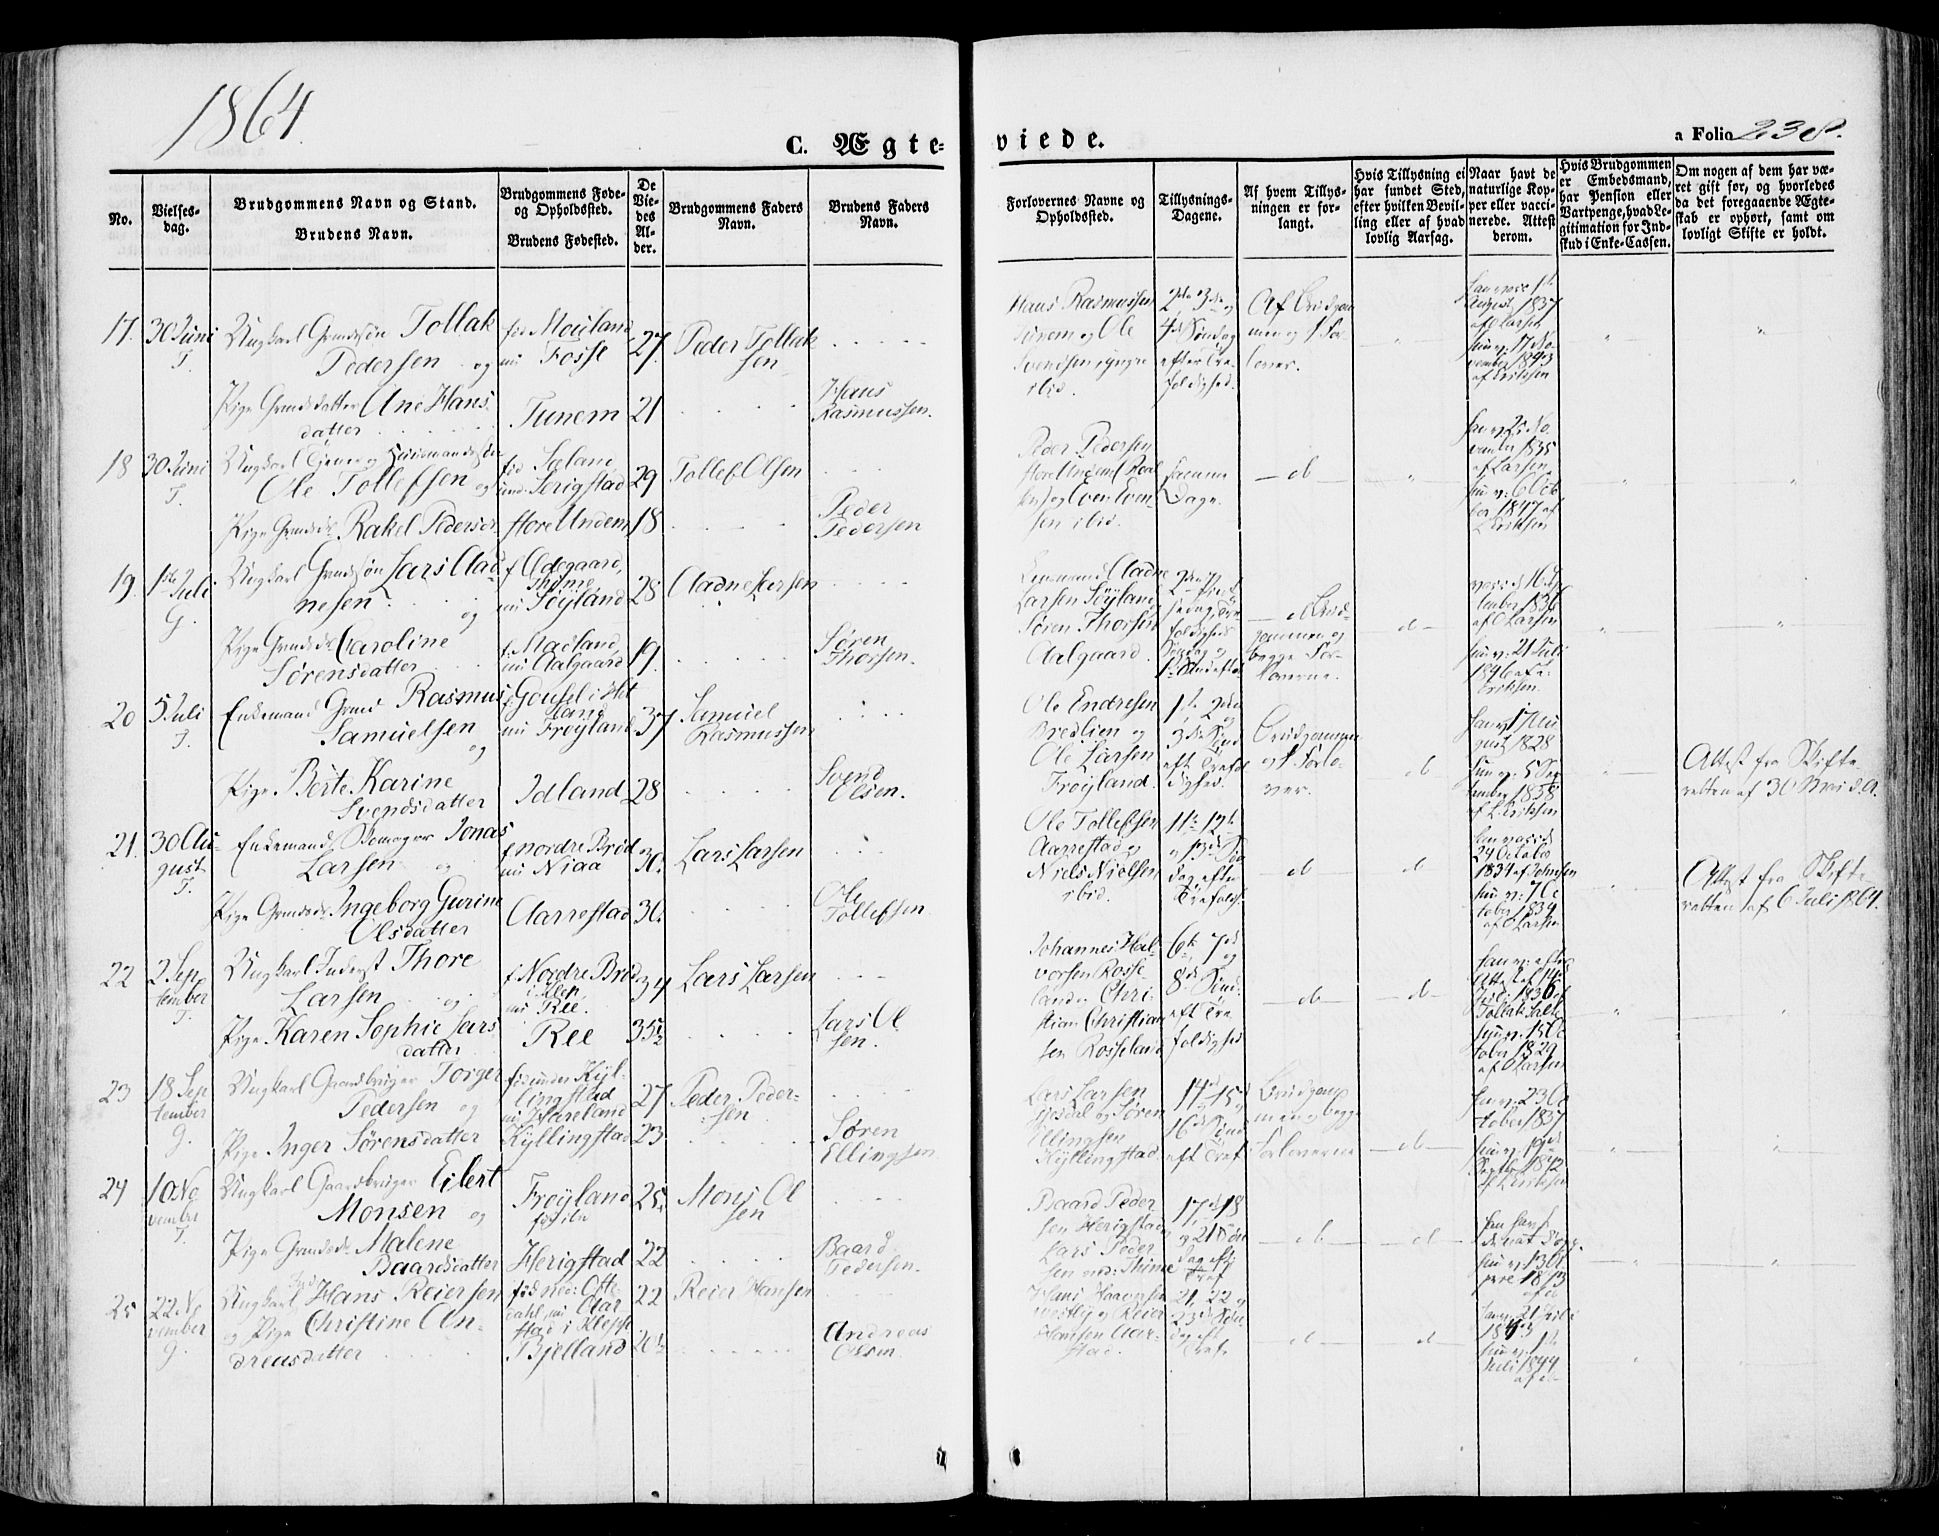 1864
C. Ægte-
viede.
a Folio 238.
No.
Vielses-
dag.
Brudgommens Navn og Stand.
Brudens Navn.
Brudgommens Føde-
og Opholdssted.
Brudens Fødested.
De
Vie-
des
Al-
der.
Brudgommens Faders
Navn.
Brudens Faders
Navn.
Forlovernes Navne og
Opholdssted.
Tillysnings-
Dagene.
Af hvem Tillys-
ningen er for-
langt.
Hvis Tillysning ei
har fundet Sted,
efter hvilken Bevil-
ling eller af hvad
lovlig Aarsag.
Naar havt de
naturlige Kop-
per eller vacci-
nerede. Attest
derom.
Hvis Brudgommen
er Embedsmand,
har Pension eller
Vartpenge, hvad Le-
gitimation for Ind-
skud i Enke-Cassen.
Om nogen af dem har væ-
ret gift før, og hvorledes
da det foregaaende Ægte-
skab er ophørt, samt om
lovligt Skifte er holdt.
17. 30 Juni
T.
Ungkarl Grmdssøn Tollak
Pedersen og
Pige Grmdsdatter Ane Hans
datter
fød Mauland
nu Fosse
Tunem
27
21
Peder Tollak
sen
Hans
Rasmussen.
Hans Rasmussen
Tunem og Ole
Svendsen
ibid.
2den 3die og
4de Søndag
efter Tre-
foldighed.
Af Brudgom
men og 1 For
lover.
Han vacc 1ste
August 1837
af O Larsen
hun v. 17 No
vember 1843
af Eriksen
18 30 Juni
T.
Ungkarl Tjener og Huusmandssøn
Ole Tollefsen og
Pige Grmdsd. Rakel Pedersd.
fød Sæland
und. Serigstad
Store Undem
29
18
Tollef Olsen
Peder
Pedersen
Peder Pedersen
Store Undem
og Even Even
sen ibid.
samme
Dage.
do
Han v. 25 No
vember 1835
af Larsen
hun v. 6 Octo
ber 1847 af
L Eriksen
19. 1ste Juli
G.
Ungkarl Grmdssøn Lars Aad-
nesen og
Pige Grmdsd. Caroline
Sørensdatter
f. Ødegaard,
Thime
nu Søyland
f. Madland,
nu Aalgaard
28
19.
Aadne Larsen
Søren
Thorsen.
Aadne
Larsen Søyland
Søren Thorsen
Aalgaard.
do Brud
gommen og
begge For-
loverne.
do
1836
af O Larsen
hun v. 21 Juli
1846 af
Eriksen.
20 5 Juli
T.
Enkemand Grmd Rasmus
Samuelsen og
Pige Berte Karine
Svendsdatter
f. Gousel i Høt
land
nu Frøyland
Idland
37
28
Samuel
Rasmussen
Svend
Olsen.
Ole Endresen
Bredlien og
Ole Larsen
Frøyland.
1ste 2den
og
3die Sønd
eft Trefol
dighed.
Brudgommen
og 1 Forlo
ver.
do
Han v. 17 Au
gust 1828
hun v. 5 Sep
tember 1838
af L. Eriksen
Attest fra Skifte-
retten af 30 Mai d.A.
21. 30 Au-
gust
T.
Enkemand Skomager Jonas
Larsen og
Pige Grmdsd. Ingeborg Gurine
Olsdatter
f. nordre Brød
nu Niaa
Aarrestad
30.
30.
Lars Larsen
Ole
Tollefsen
Ole Tollefsen
Aarrestad og
Niels Nielsen
ibid.
11te 12te
og 13de Søn
dag efter
Trefoldsh.
do
do
Han vacc d.
24 October
1834 af Johnsen
hun v. 7 Oc
tober 1834
af O Larsen
Attest fra Skifte-
retten af 6 Juli 1864.
22 2 Sep
tember
T.
Ungkarl Inderst Thore
Larsen og
Pige Karen Sophie Lars
datter
f. Nordre Brød
i Klep,
nu Ree.
Ree
34
35½
Lars Larsen
Lars Ol
sen.
Johannes Hal
vorsen Rosse-
land og Chri-
stian Christian
sen Rosseland
6te 7de og
8de Sønd.
eft Tre
foldighed
do
do
Han v. efter
Attest af 14de
Juli 1836 af
Tollak
hun v. 15 Oc
tober 1829
af O Larsen
23 18 Sep
tember
G.
Ungkarl Gaardbruger Torger
Pedersen og
Pige Inger Sørensdatter
fød under Kyl-
lingstad
nu Hareland
Kyllingstad
27
23.
Peder Peder-
sen
Søren
Ellingsen
Lars Larsen
Gjesdal og Søren
Ellingsen
Kyllingstad.
14de 15de og
16de Sønd
eft Tref
Brudgom
men og begge
Forloverne
do
Han v. 23 Oc
tober 1837
hun v. 19de
Septb. 1842
af L Eriksen
24 10 No
vember
T.
Ungkarl Gaardbruger Eilert
Monsen og
Pige Grmdsd. Malene
Baardsdatter
Frøyland
Herigstad
25.
22
Mons Ol
sen
Baard
Pedersen.
Baard Peder
sen Herigstad
Lars Peder
sen ned. Thime
17de 18
og 21de Søn
dag eft
Tref
do
do
hun v. 13 Oc
1843
25 22 No
vember
G.
Ungkarl Hans Reiersen
og Pige Christine An-
dreasdatter
fød ned: Otte
dahl, nu Aar
stad i Klepp
Bjelland
22
20½
Reier Hansen
Andreas
Olsen
Hans
og Reier
Hansen Aar-
stad.
21, 22 og
23de Søn
dag eft
Tref.
do
do
Han v. 21 Juli
1843
hun v. 1ste
Juli 1844
af do